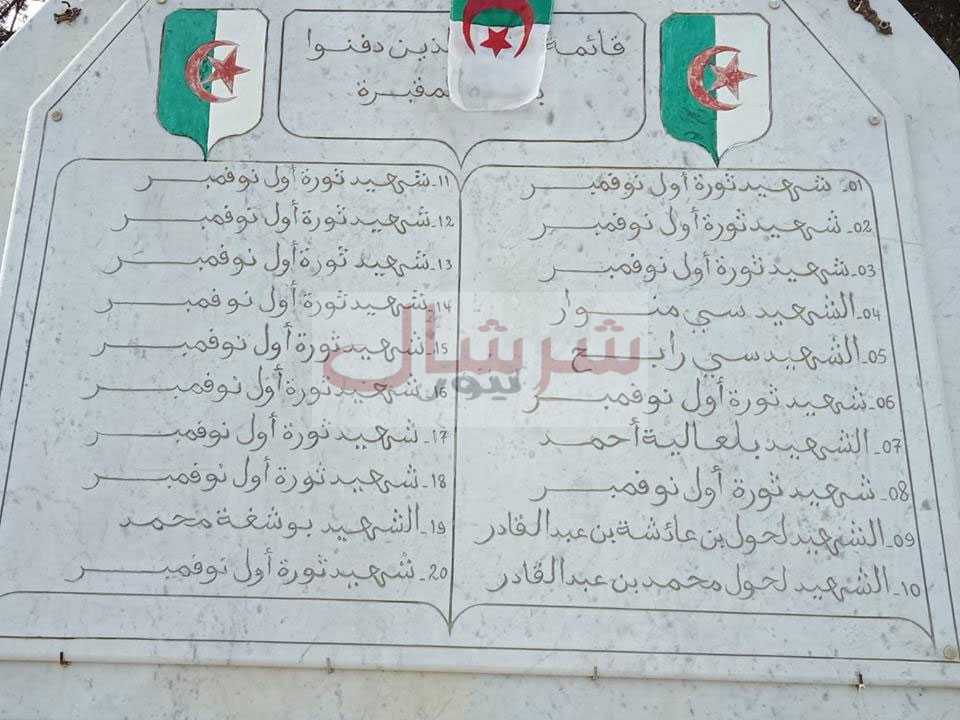 قائمة الذين دفنوا
بـ المقبرة
01- شهيد ثورة أول نوفمبر
02- شهيد ثورة أول نوفمبر
03- شهيد ثورة أول نوفمبر
04- الشهيد سي منوار
05- الشهيد سي رابح
06- شهيد ثورة أول نوفمبر
07- الشهيد بلعالية أحمد
08- شهيد ثورة أول نوفمبر
09- الشهيد لحول بن عائشة بن عبد القادر
10- الشهيد لحول محمد بن عبد القادر
11- شهيد ثورة أول نوفمبر
12- شهيد ثورة أول نوفمبر
13- شهيد ثورة أول نوفمبر
14- شهيد ثورة أول نوفمبر
15- شهيد ثورة أول نوفمبر
16- شهيد ثورة أول نوفمبر
17- شهيد ثورة أول نوفمبر
18- شهيد ثورة أول نوفمبر
19- الشهيد بوشغة محمد
20- شهيد ثورة أول نوفمبر
شرشال
نيوز